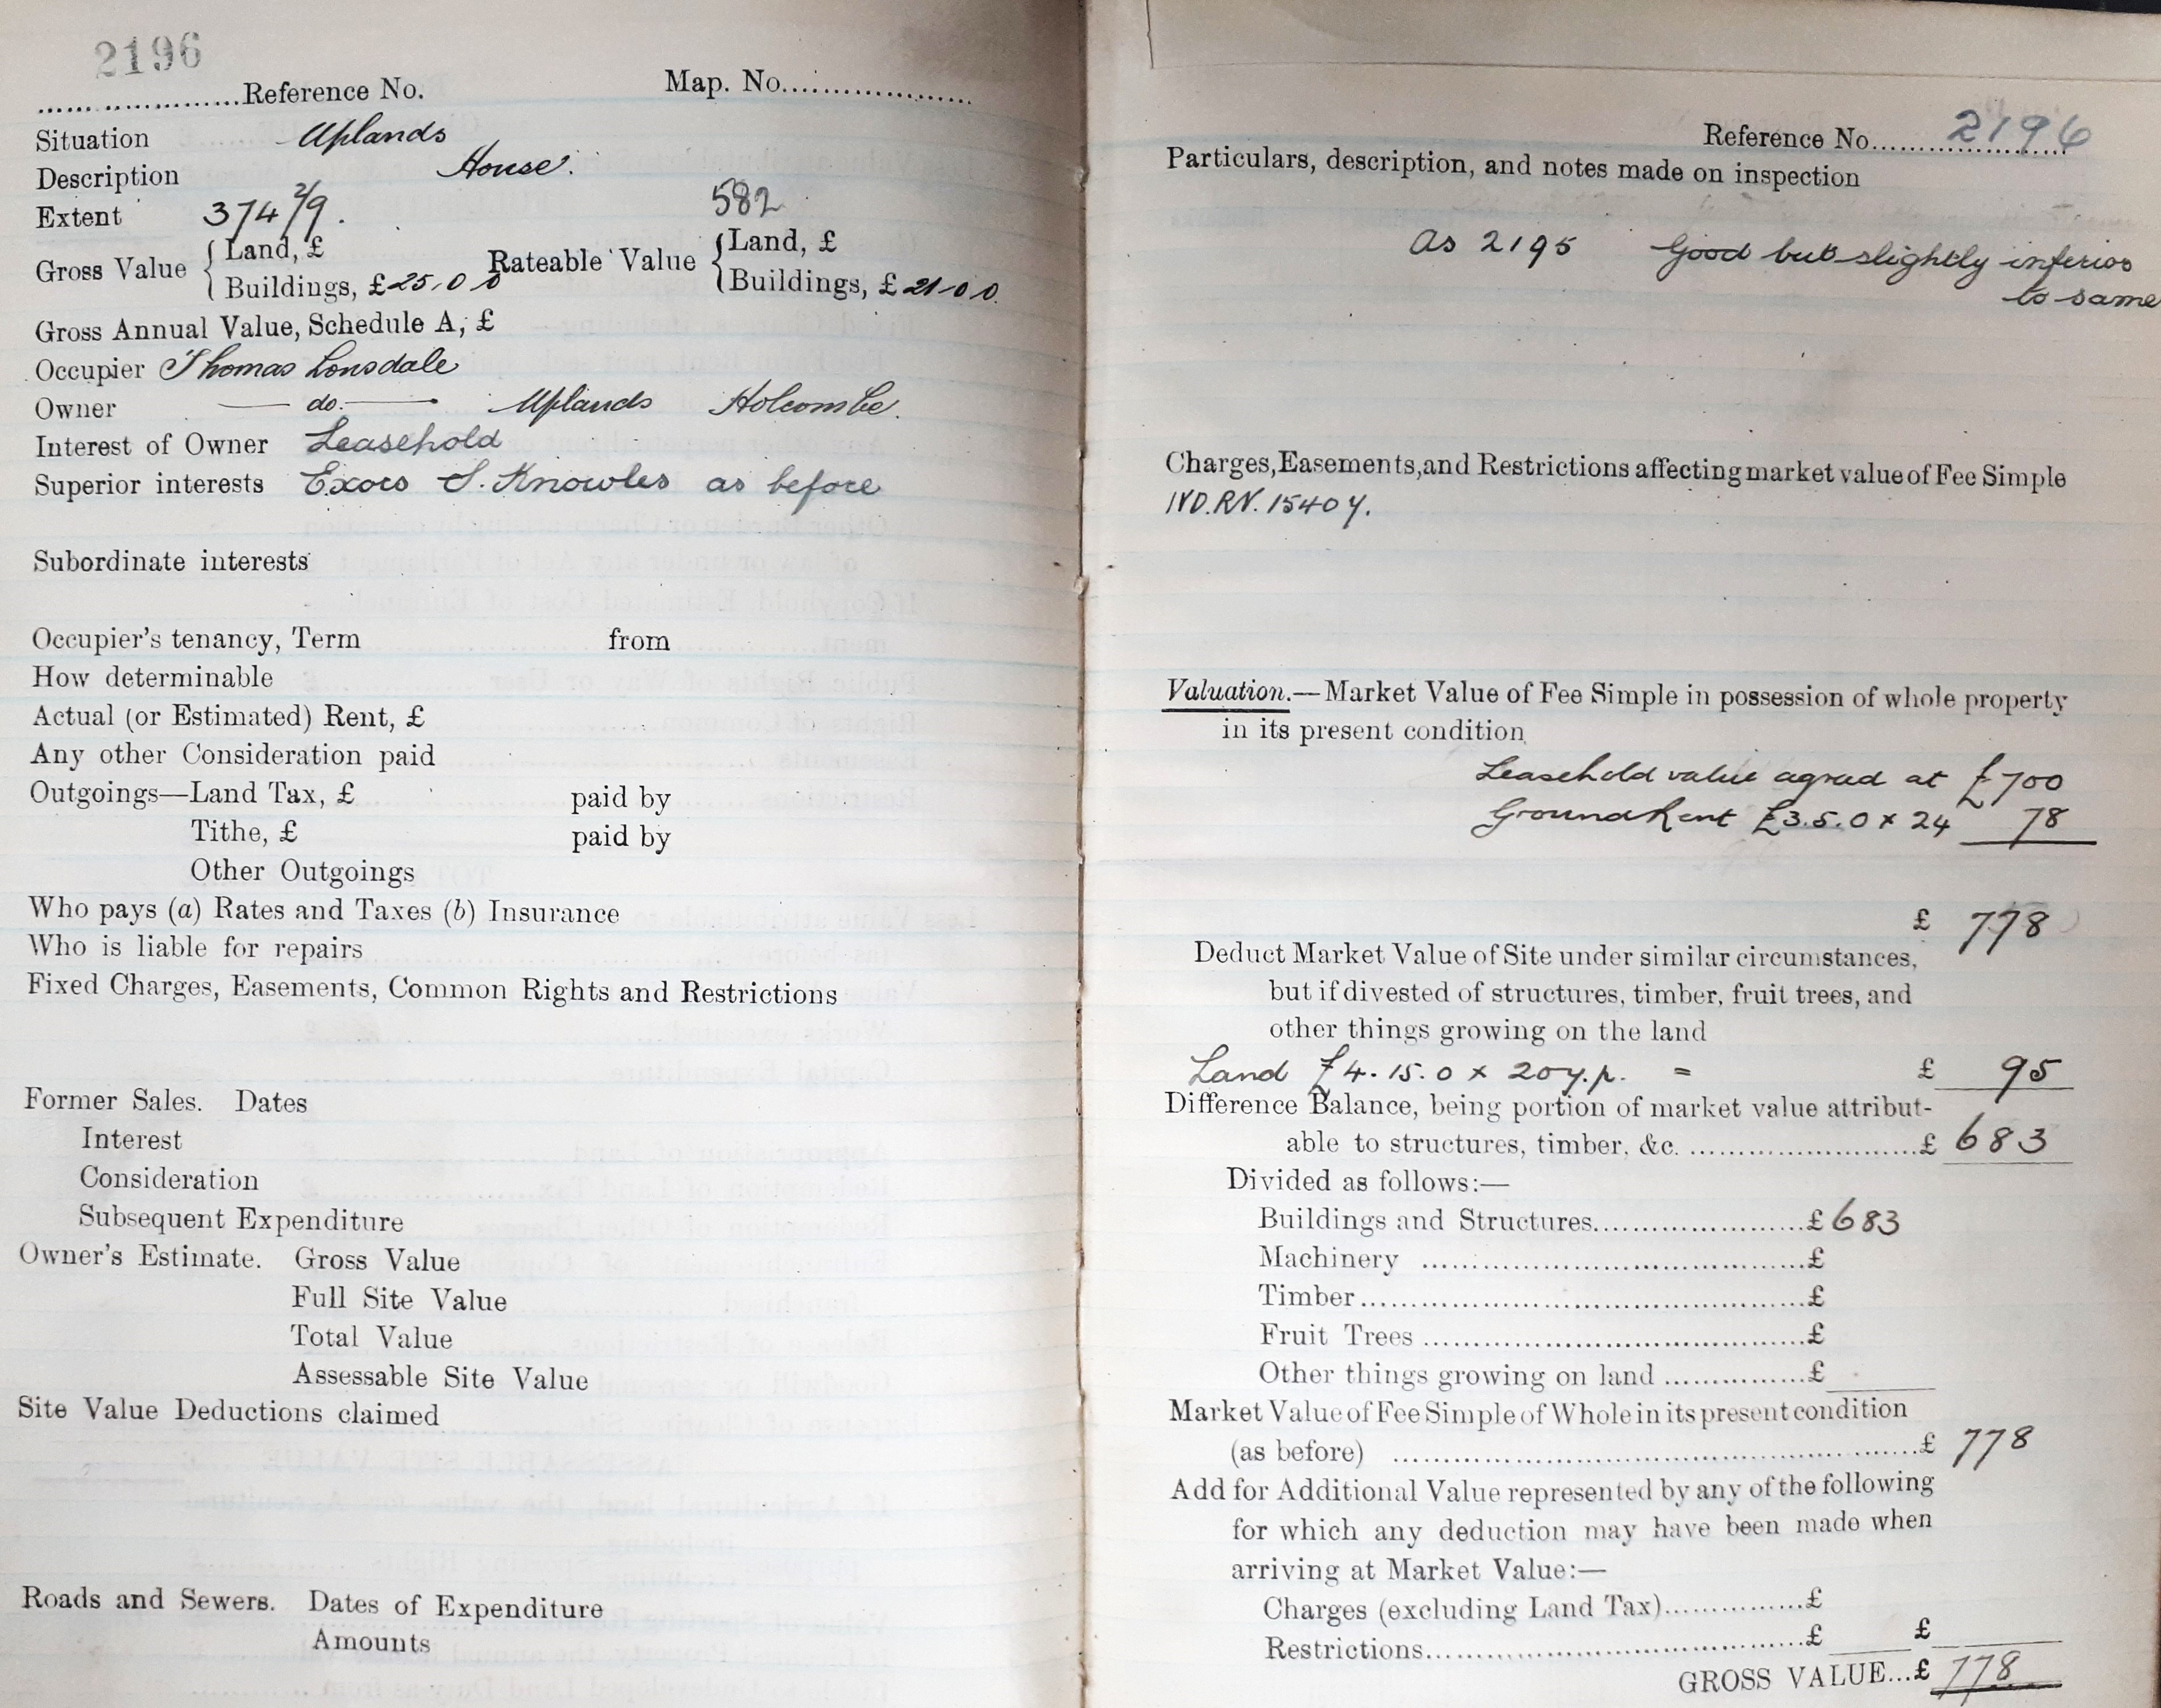 2196
........................Reference No. Map. No.....................
Situation Uplands
Description House.
Extent 374 2/9. 582
Gross Value { Land, £ Rateable Value { Land, £
Buildings, £25.0 0 Buildings, £21.0 0.
Gross Annual Value, Schedule A, £
Occupier Thomas Lonsdale
Owner — do. — Uplands Holcombe.
Interest of Owner Leasehold
Superior interests Exors S. Knowles as before
Subordinate interests
Occupier's tenancy, Term from
How determinable
Actual (or Estimated) Rent, £
Any other Consideration paid
Outgoings—Land Tax, £ paid by
Tithe, £ paid by
Other Outgoings
Who pays (a) Rates and Taxes (b) Insurance
Who is liable for repairs
Fixed Charges, Easements, Common Rights and Restrictions
Former Sales. Dates
Interest
Consideration
Subsequent Expenditure
Owner's Estimate. Gross Value
Full Site Value
Total Value
Assessable Site Value
Site Value Deductions claimed
Roads and Sewers. Dates of Expenditure
Amounts
Reference No. 2196
Particulars, description, and notes made on inspection
As 2195 Good but slightly inferior
to same
Charges, Easements, and Restrictions affecting market value of Fee Simple
Valuation.—Market Value of Fee Simple in possession of whole property
in its present condition
Leasehold value agreed at £700
Ground Rent £3.5.0 x 24 78
£ 778
Deduct Market Value of Site under similar circumstances,
but if divested of structures, timber, fruit trees, and
other things growing on the land
Land £4.15.0 x 20 y.p. = £ 95
Difference Balance, being portion of market value attribut-
able to structures, timber, &c. ........................£ 683
Divided as follows:—
Buildings and Structures.......................£683
Machinery ..........................................£
Timber................................................£
Fruit Trees ..........................................£
Other things growing on land ...............£
Market Value of Fee Simple of Whole in its present condition
(as before) ..........................................................£ 778
Add for Additional Value represented by any of the following
for which any deduction may have been made when
arriving at Market Value:—
Charges (excluding Land Tax)...............£
Restrictions..........................................£ £
GROSS VALUE...£ 778